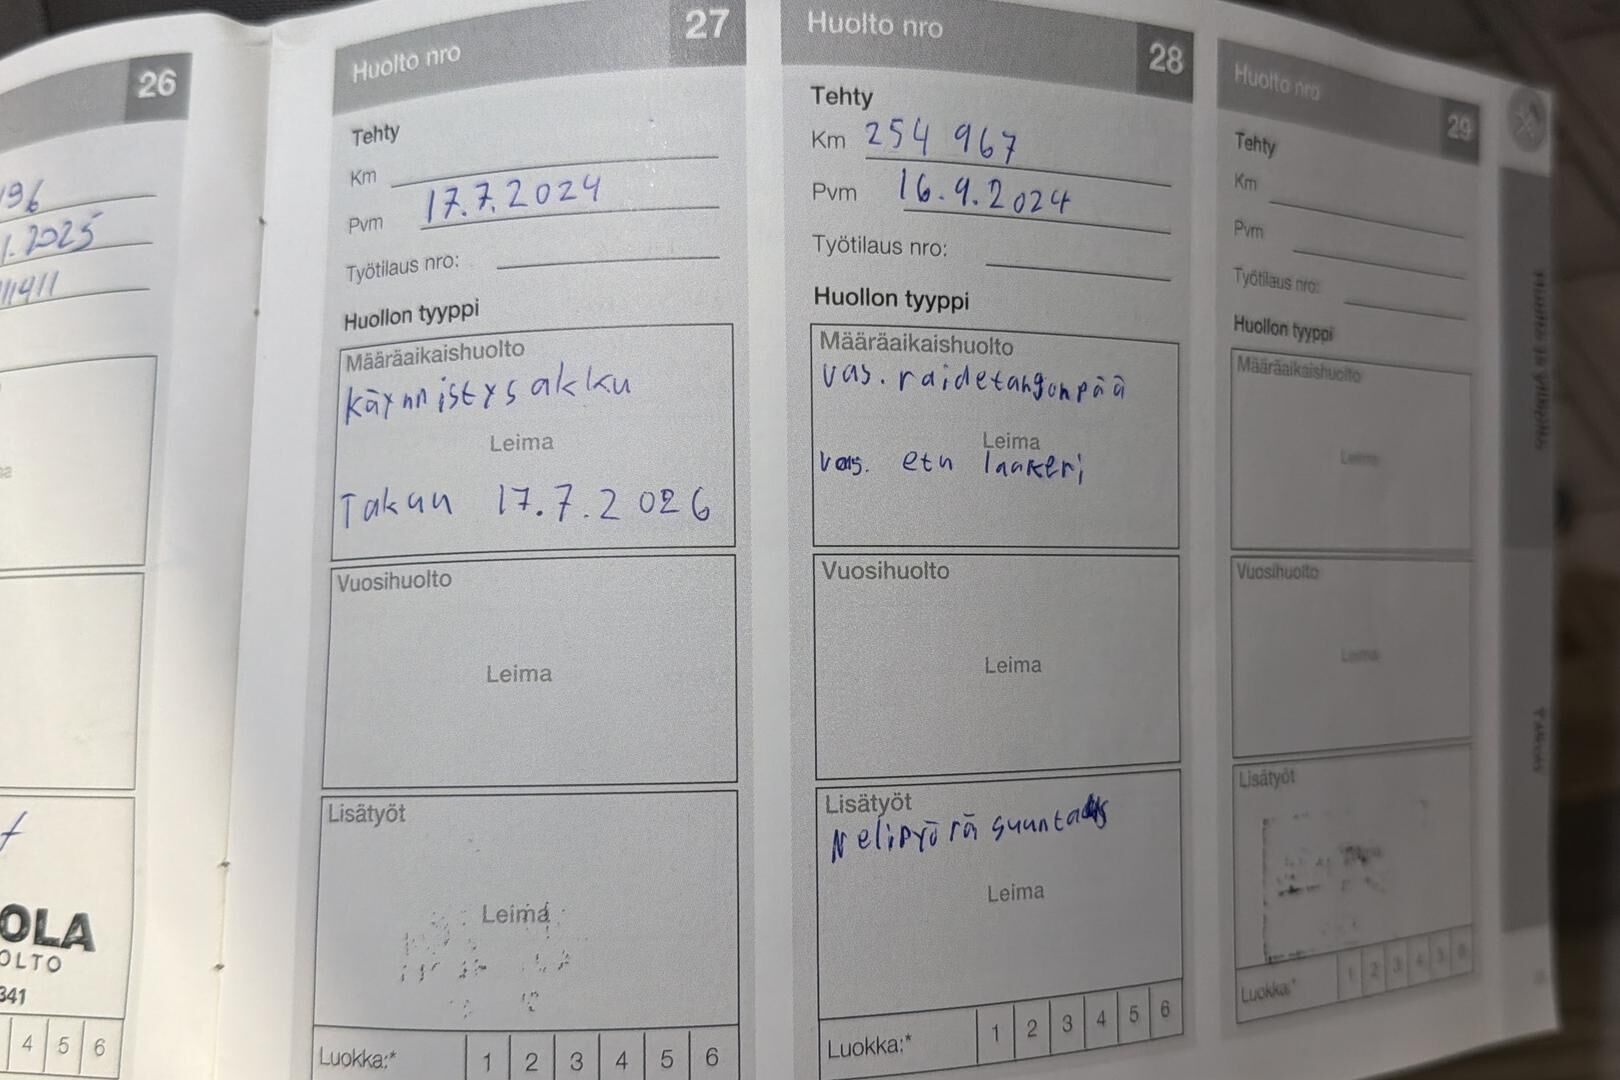 26
196
1.2025
111411
OLA
OLTO
341
4 5 6
Huolto nro 27
Tehty
Km
Pvm 17.7.2024
Työtilaus nro:
Huollon tyyppi
Määräaikaishuolto
käynnistys akku
Leima
Takuu 17.7.2026
Vuosihuolto
Leima
Lisätyöt
Leima
Luokka:* 1 2 3 4 5 6
Huolto nro 28
Tehty
Km 254 967
Pvm 16.9.2024
Työtilaus nro:
Huollon tyyppi
Määräaikaishuolto
vas. raidetangonpää
Leima
vas. etu laakeri
Vuosihuolto
Leima
Lisätyöt
Nelipyörä suuntaus
Leima
Luokka:* 1 2 3 4 5 6
Huolto nro 29
Tehty
Km
Pvm
Työtilaus nro:
Huollon tyyppi
Määräaikaishuolto
Leima
Vuosihuolto
Leima
Lisätyöt
Luokka:* 1 2 3 4 5 6